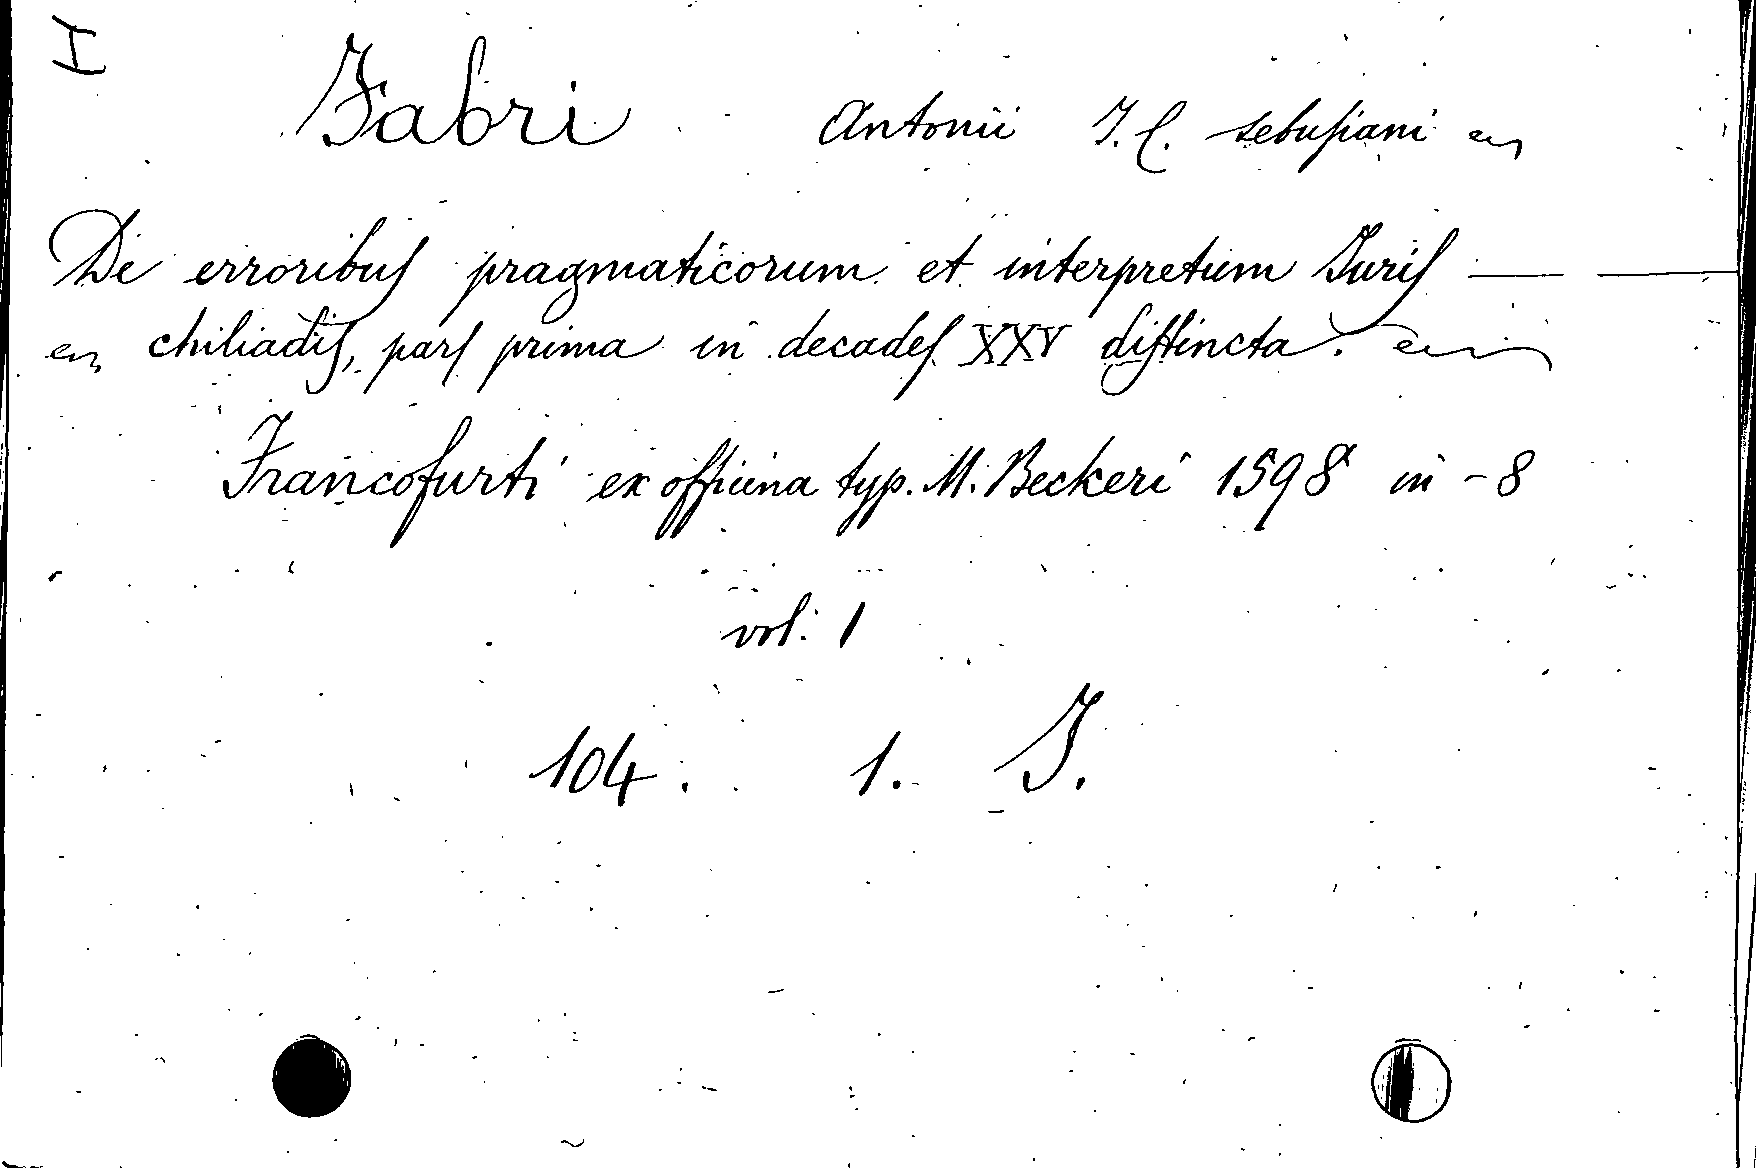 I
Fabri Antonii J. C. sebusiani
De erroribus pragmaticorum et interpretum Juris
chiliadis, pars prima in decades XXV distincta.
Francofurti ex officina typ. M. Beckeri 1598 in-8
vol: 1
104. 1. J.